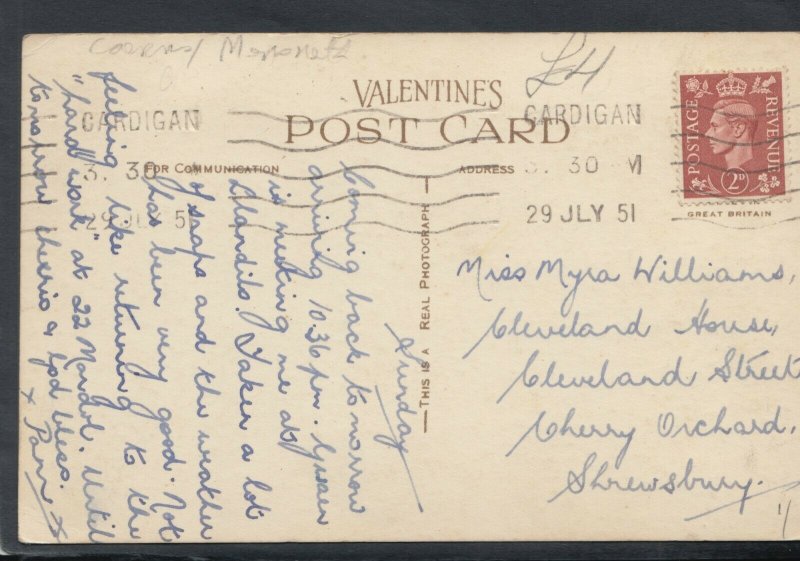 VALENTINES
POST CARD
FOR COMMUNICATION
ADDRESS
THIS IS A REAL PHOTOGRAPH
CARDIGAN
3. 30
29 JLY 5
CARDIGAN
3. 30 M
29 JLY 51
POSTAGE
REVENUE
2D
GREAT BRITAIN
Sunday
Coming back to-morrow
arriving 10.36 pm.
is meeting me at
Taken a lot
of snaps and the weather
has been very good. Not
feeling like returning to the
"hard work" at 22 Mardol. Until
tomorrow cheerio & God bless.
x Pam x
Miss Myra Williams,
Cleveland House,
Cleveland Street
Cherry Orchard,
Shrewsbury.